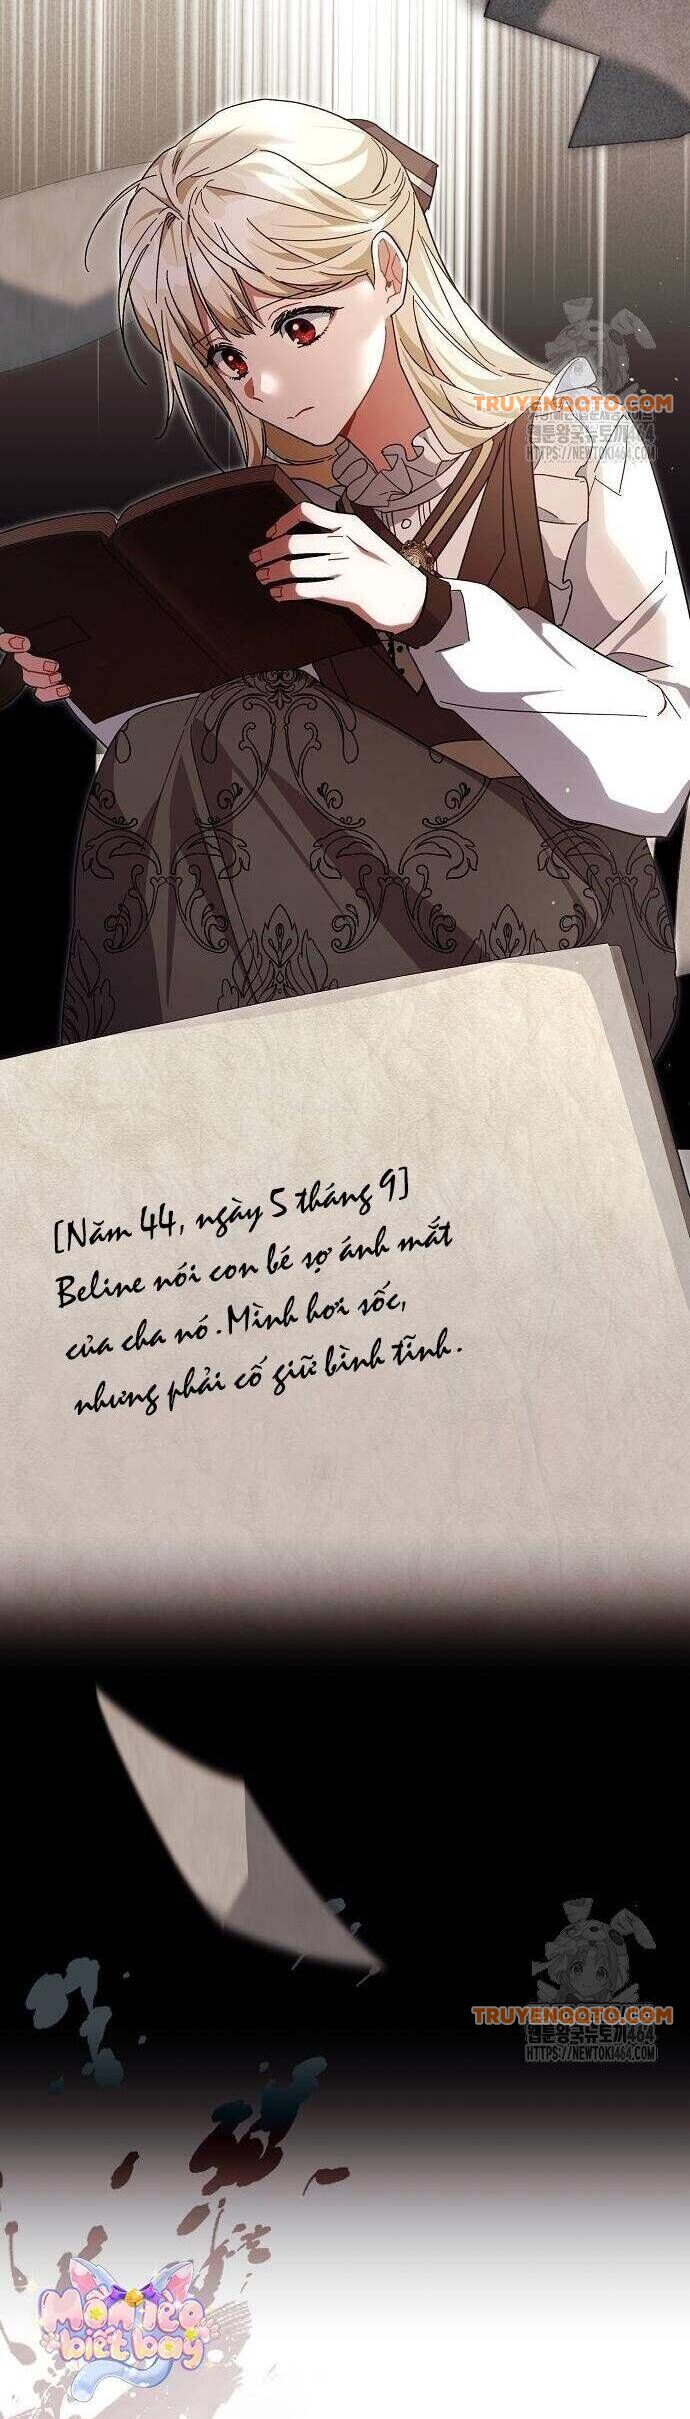 TRUYENQQTO.COM
웹툰왕국뉴토끼464
HTTPS://NEWTOKI464.COM
[Năm 44, ngày 5 tháng 9]
Beline nói con bé sợ ánh mắt
của cha nó. Mình hơi sốc,
nhưng phải cố giữ bình tĩnh.
TRUYENQQTO.COM
웹툰왕국뉴토끼464
HTTPS://NEWTOKI464.COM
Mồn lèo
biết bay